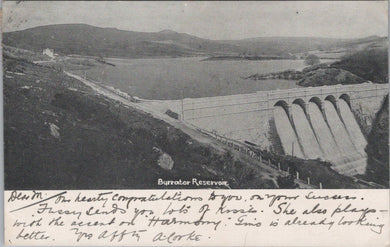 Burrator Reservoir.
Dear M. Our hearty congratulations to you, on your Success.
Fussy Sends you lots of Kisses. She also plays
with the accent on Harmony. Tiny is already looking
better. Yrs Affly